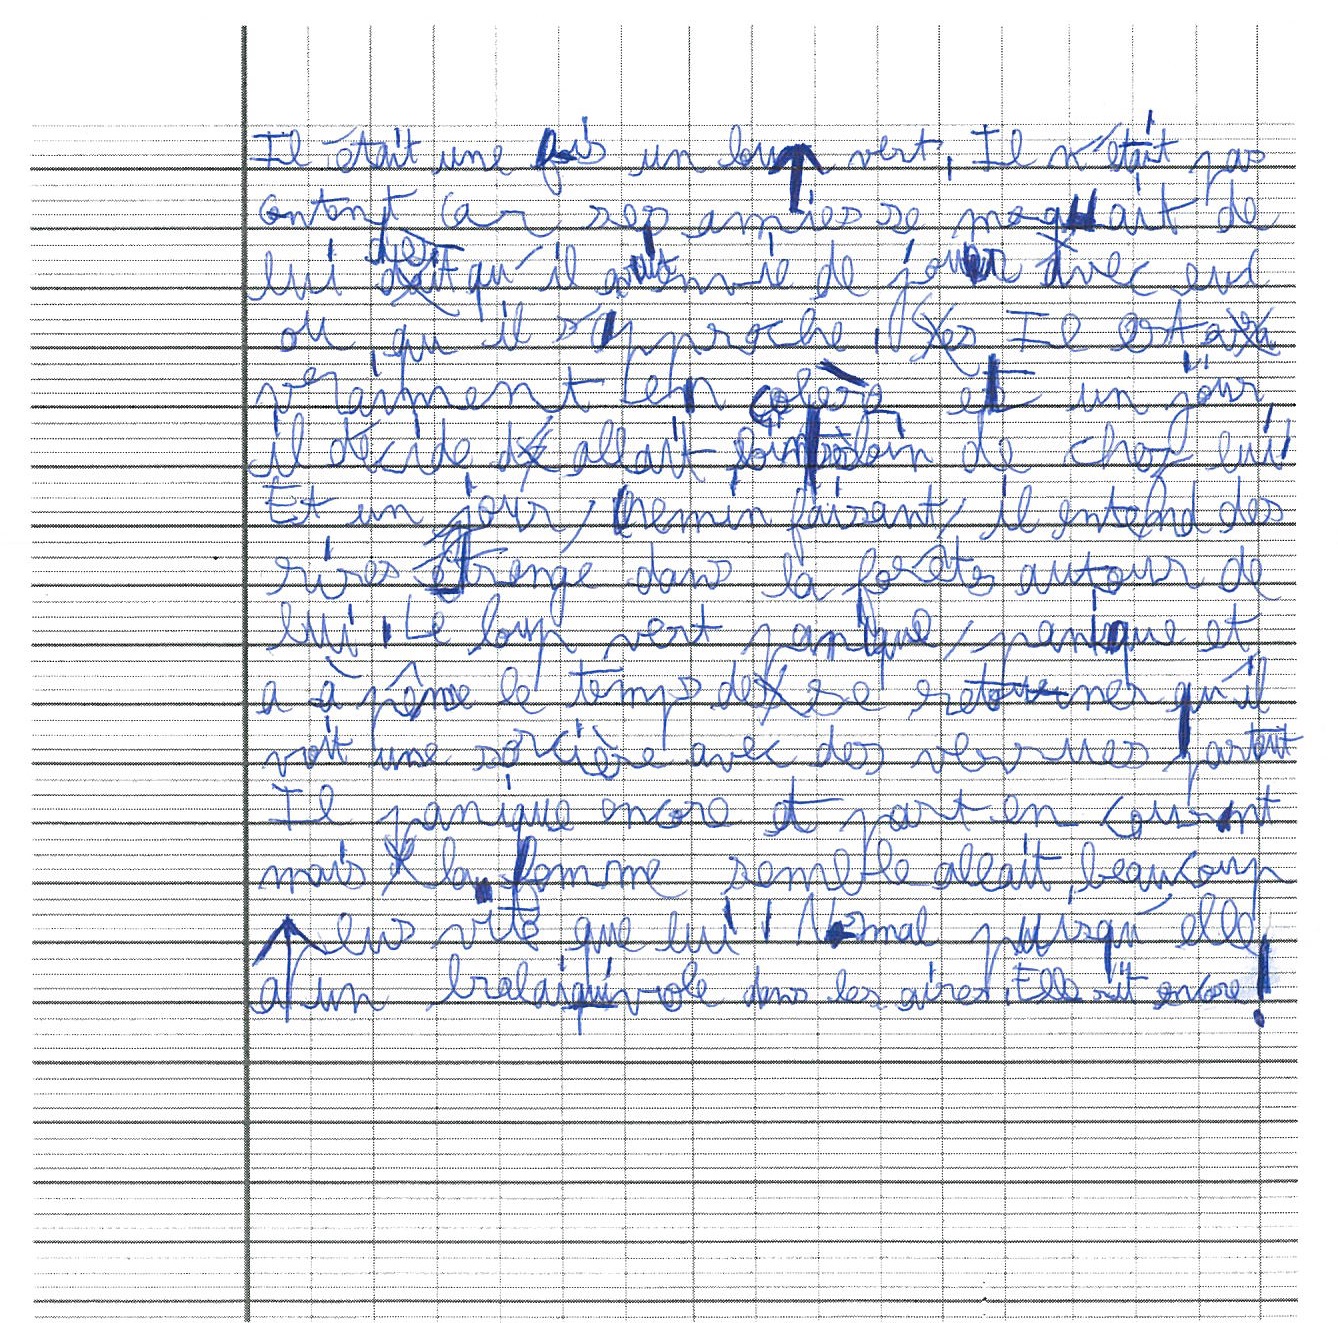 Il était une fois un loup vert. Il n'était pas
content car ses amies se moquait de
lui dès qu'il avait envie de jouer avec eux
ou qu'il s'approche. Il est
vraiment en colère et un jour,
il décide d'allait loin de chez lui
Et un jour, chemin faisant, il entend des
rires étrange dans la forêts autour de
lui. Le loup vert panique, panique et
a à pêne le temps de se retourner qu'il
voit une sorcière avec des verrues partout
Il panique encore et part en courant
mais la femme semble allait beaucoup
plus vite que lui ! Normal puisqu'elle
a un balai qui vole dans les aires. Elle rit encore !